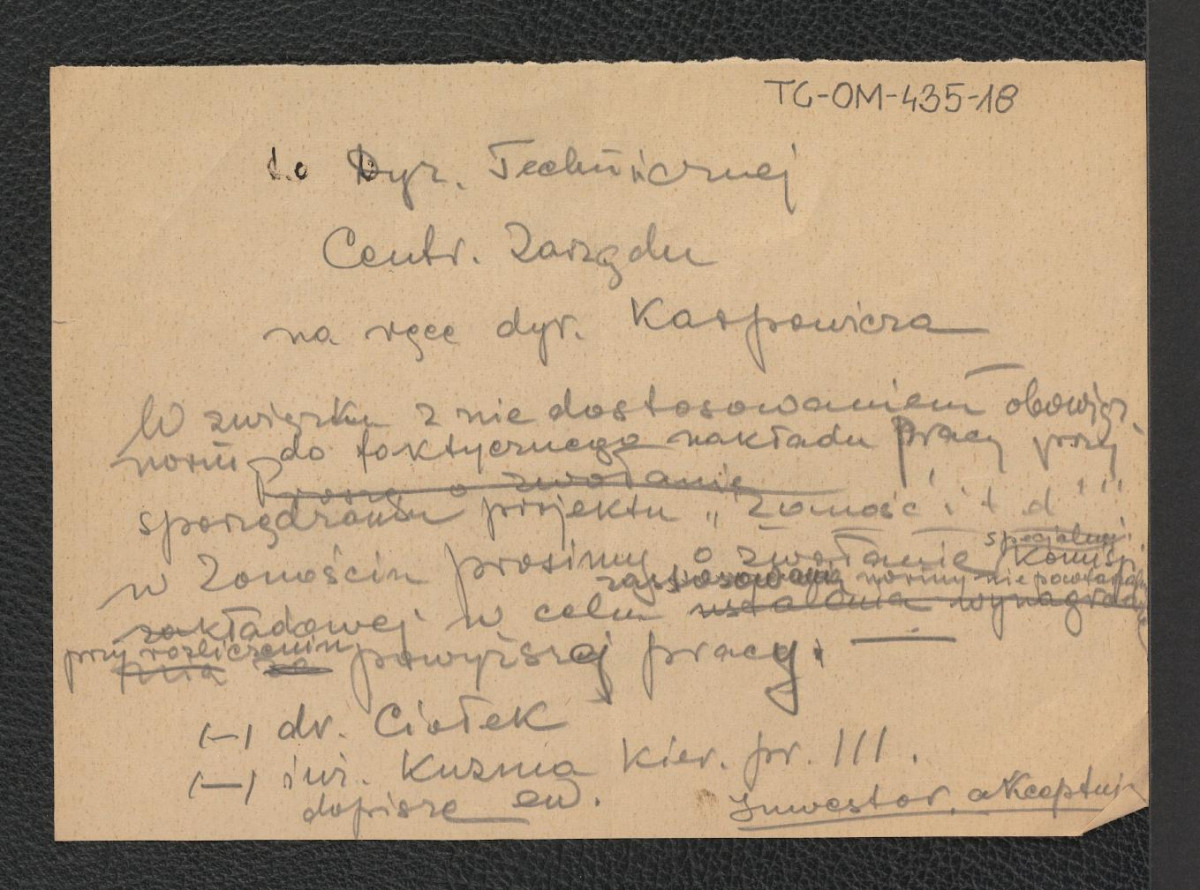 TG-OM-435-18
do Dyr. Technicznej
Centr. Zarządu
na ręce dyr. Kacpowicza
W związku z nie dostosowaniem obowiąz.
norm do faktycznego nakładu pracy przy
proszę o zwołanie
sporządzaniu projektu „Zamość i t d"
specjalnej
w Zamościu prosimy o zwołanie Komisji
zastosowania normy nie powtarzalnej
zakładowej w celu ustalenia wynagrodze
przy rozliczeniu
nia za powyższej pracy.
(-) dr. Ciołek
(-) inż. Kuzma Kier. pr. III.
dopiszę ew.
Inwestor akceptuje